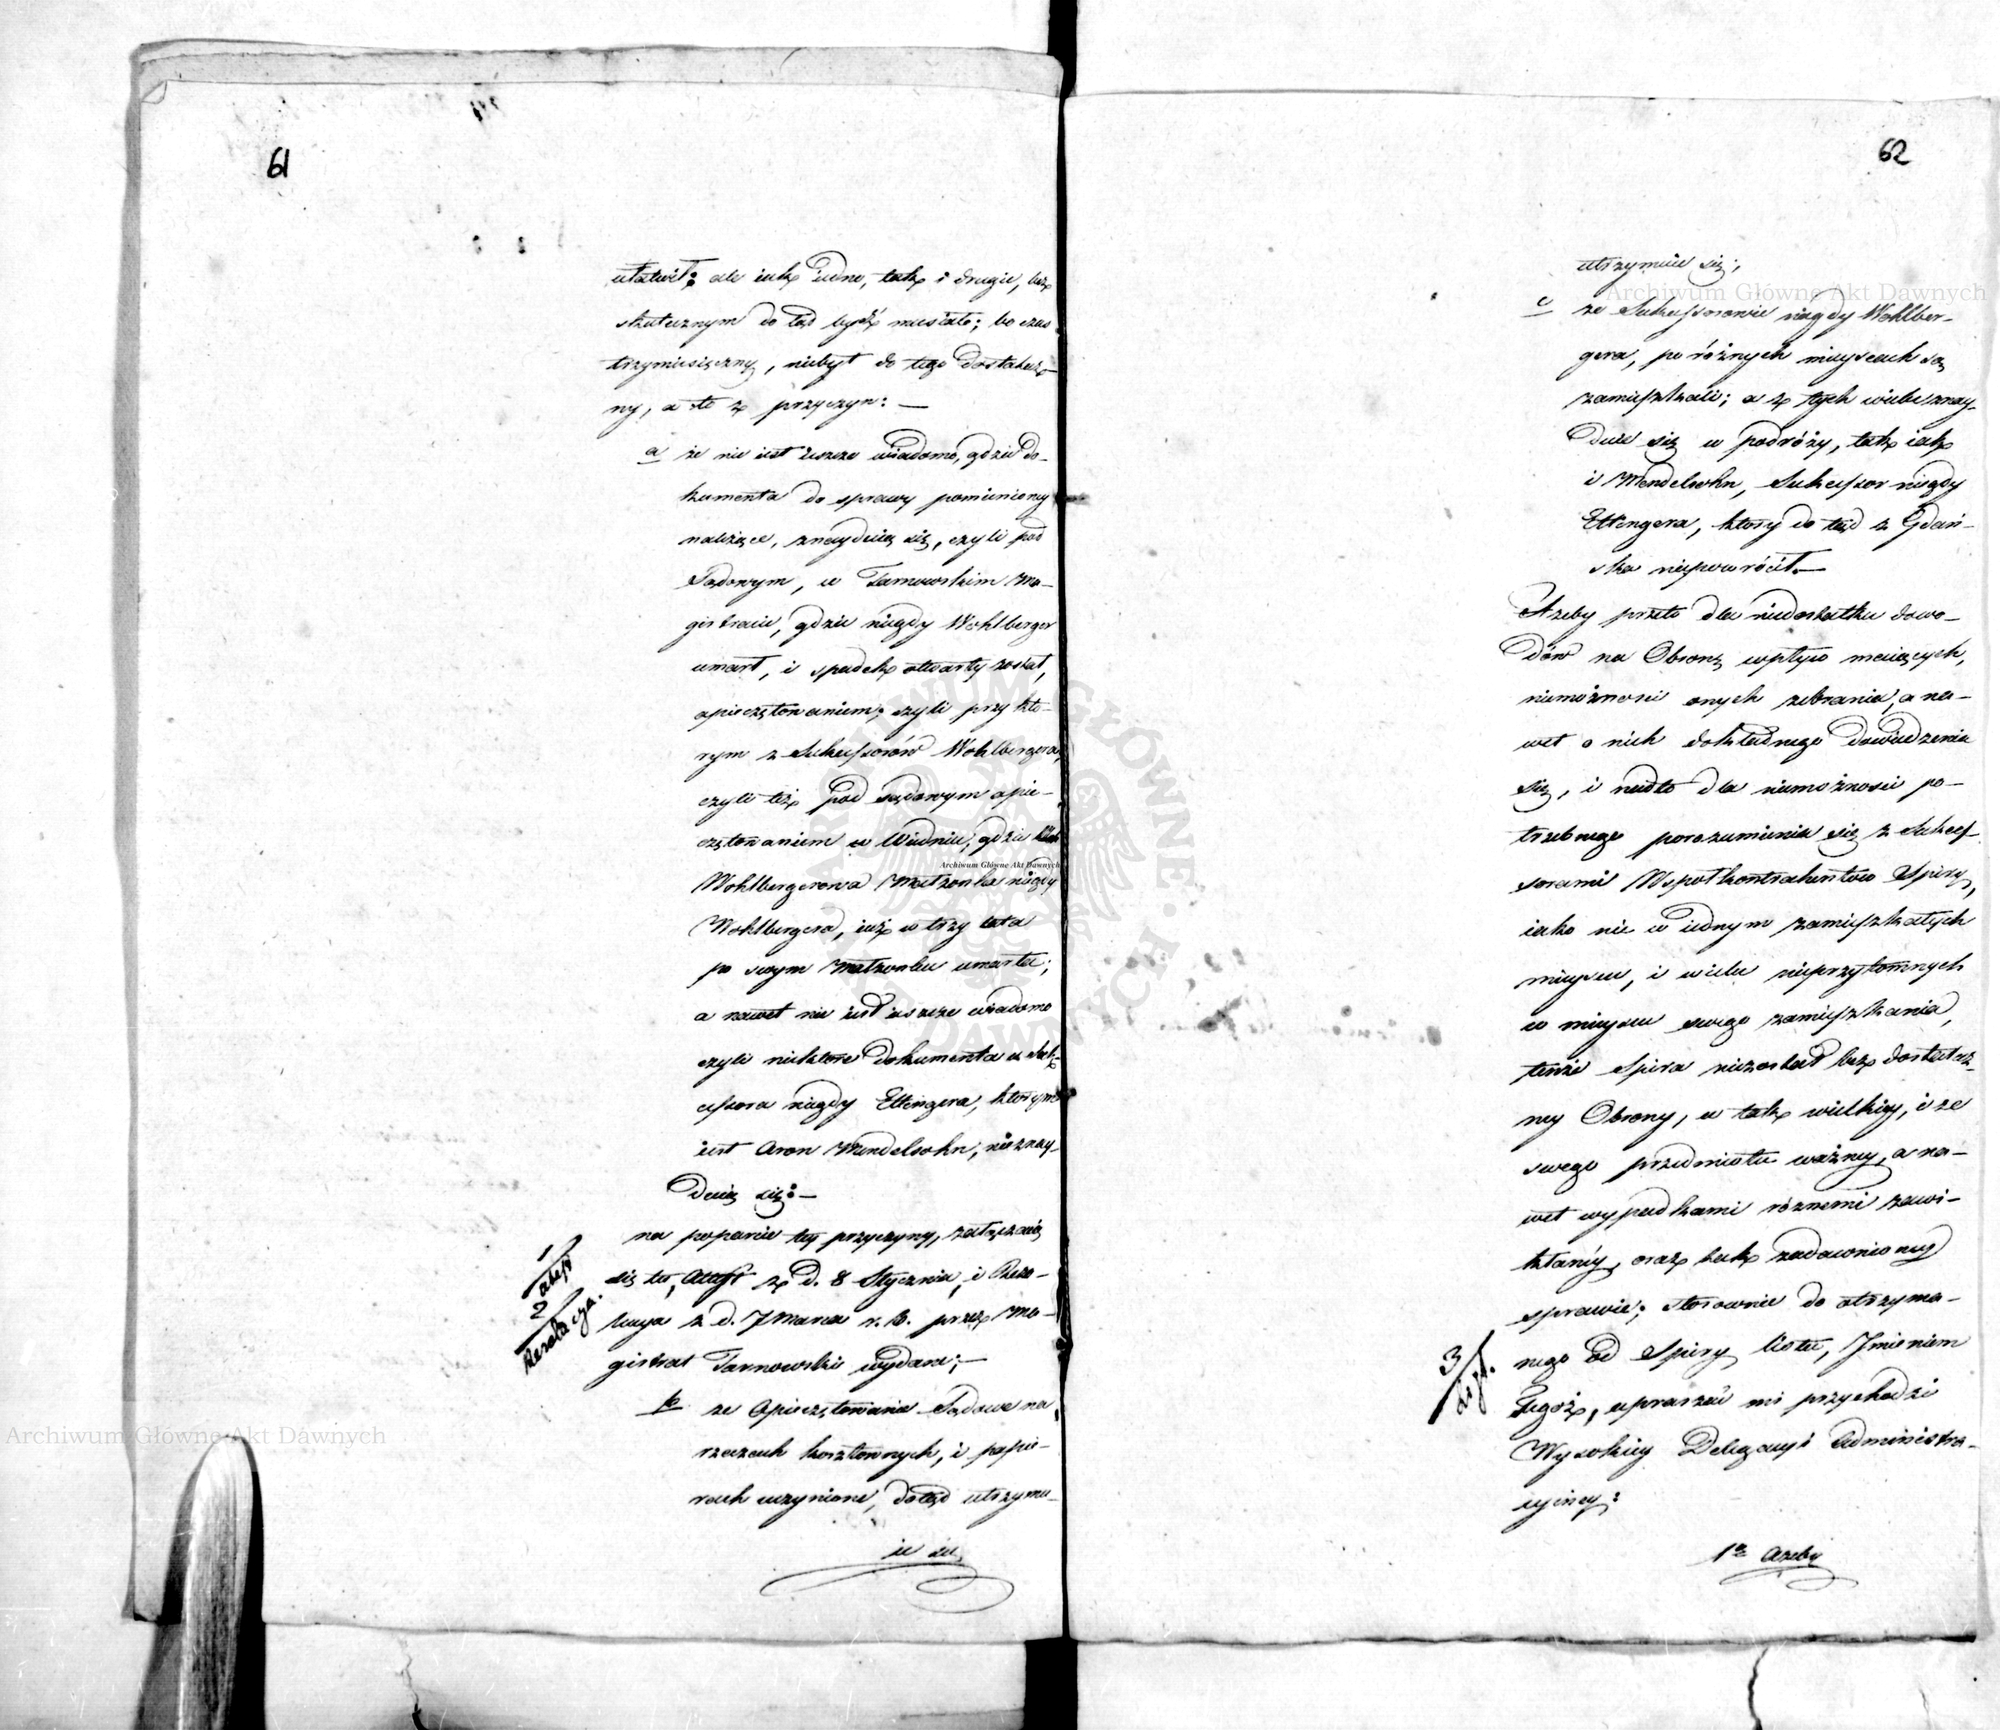 61
ułatwił; ale iak iedno, tak i drugie, bez
skutecznym do tąd bydź musiało; bo czas
trzymiesięczny, niebył do tego dostatecz-
ny, a to z przyczyn: —
a że nie iest ieszcze wiadomo, gdzie do-
kumenta do sprawy pomienioney
należące, znayduią się, czyli pod
Sądowym, w Tarnowskim Ma-
gistracie, gdzie niegdy Wohlberger
umarł, i spadek otwarty został,
opieczętowaniem; czyli przy któ-
rym z Sukcessorów Wohlbergera,
czyli też pod sądowym opie-
czętowaniem w Wiedniu, gdzie
Wohlbergerowa Małżonka niegdy
Wohlbergera, iuż w trzy lata
po swym Małżonku umarła;
a nawet nie iest ieszcze wiadomo
czyli niektóre dokumenta u Suk-
cessora niegdy Ettingera, którym
iest Aron Mendelsohn, nieznay-
duią się: —
na poparcie tey przyczyny, załączaią
się tu, Attest z D. 8 Stycznia, i Rezo-
lucya z d. 7 Marca r. b. przez Ma-
gistrat Tarnowski wydane; —
1/ attest
2/ Rezolucya.
b że Opieczętowanie Sądowe na
rzeczach kosztownych, i papie-
rach uczynione, dotąd utrzymu-
ie się
62
utrzymuie się;
c że Sukcessorowie niegdy Wohlber-
gera, po różnych mieyscach są
zamieszkali; a z tych wielu znay-
duie się w podróży, tak iak
i Mendelsohn, Sukcessor niegdy
Ettingera, który do tąd z Gdań-
ska niepowrócił. —
Ażeby przeto dla niedostatku dowo-
dów na Obronę wpływ maiących,
niemożności onych zebrania, a na-
wet o nich dokładnego dowiedzenia
się, i nadto dla niemożności po-
trzebnego porozumienia się z Sukces-
sorami Współkontrahentów Spiry,
iako nie w iednym zamieszkałych
mieyscu, i wielu nieprzytomnych
w mieyscu swego zamieszkania,
tenże Spira niezostał bez dostatecz-
ney Obrony, w tak wielkiey, i ze
swego przedmiotu ważney, a na-
wet wypadkami różnemi zawi-
kłaney, oraz tak zadawnioney
sprawie; stosownie do otrzyma-
nego od Spiry listu, Imieniem
Tegoż, upraszać mi przychodzi
Wysokiey Delegacyi Administra-
cyiney:
3/
1º Ażeby
Archiwum Główne Akt Dawnych
Archiwum Główne Akt Dawnych
Archiwum Główne Akt Dawnych